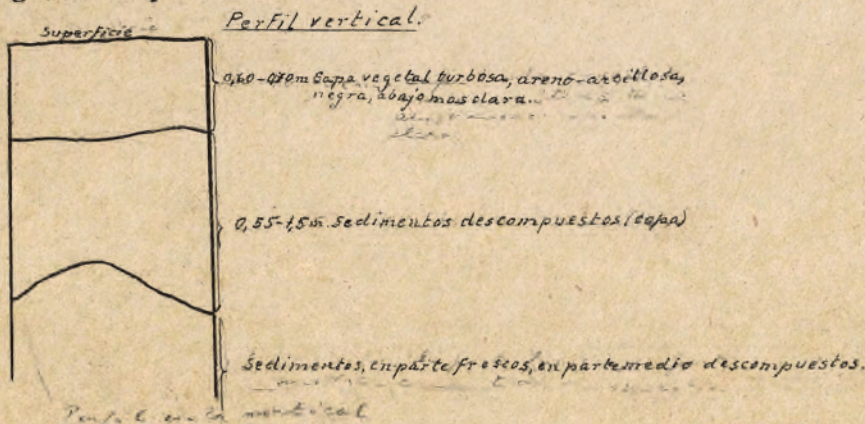 Perfil vertical.
Superficie
0,60-0,70m Capa vegetal turbosa, areno-arcillosa,
negra, abajo mas clara.
0,55-1,5m. Sedimentos descompuestos (capa)
Sedimentos, en parte frescos, en parte medio descompuestos.